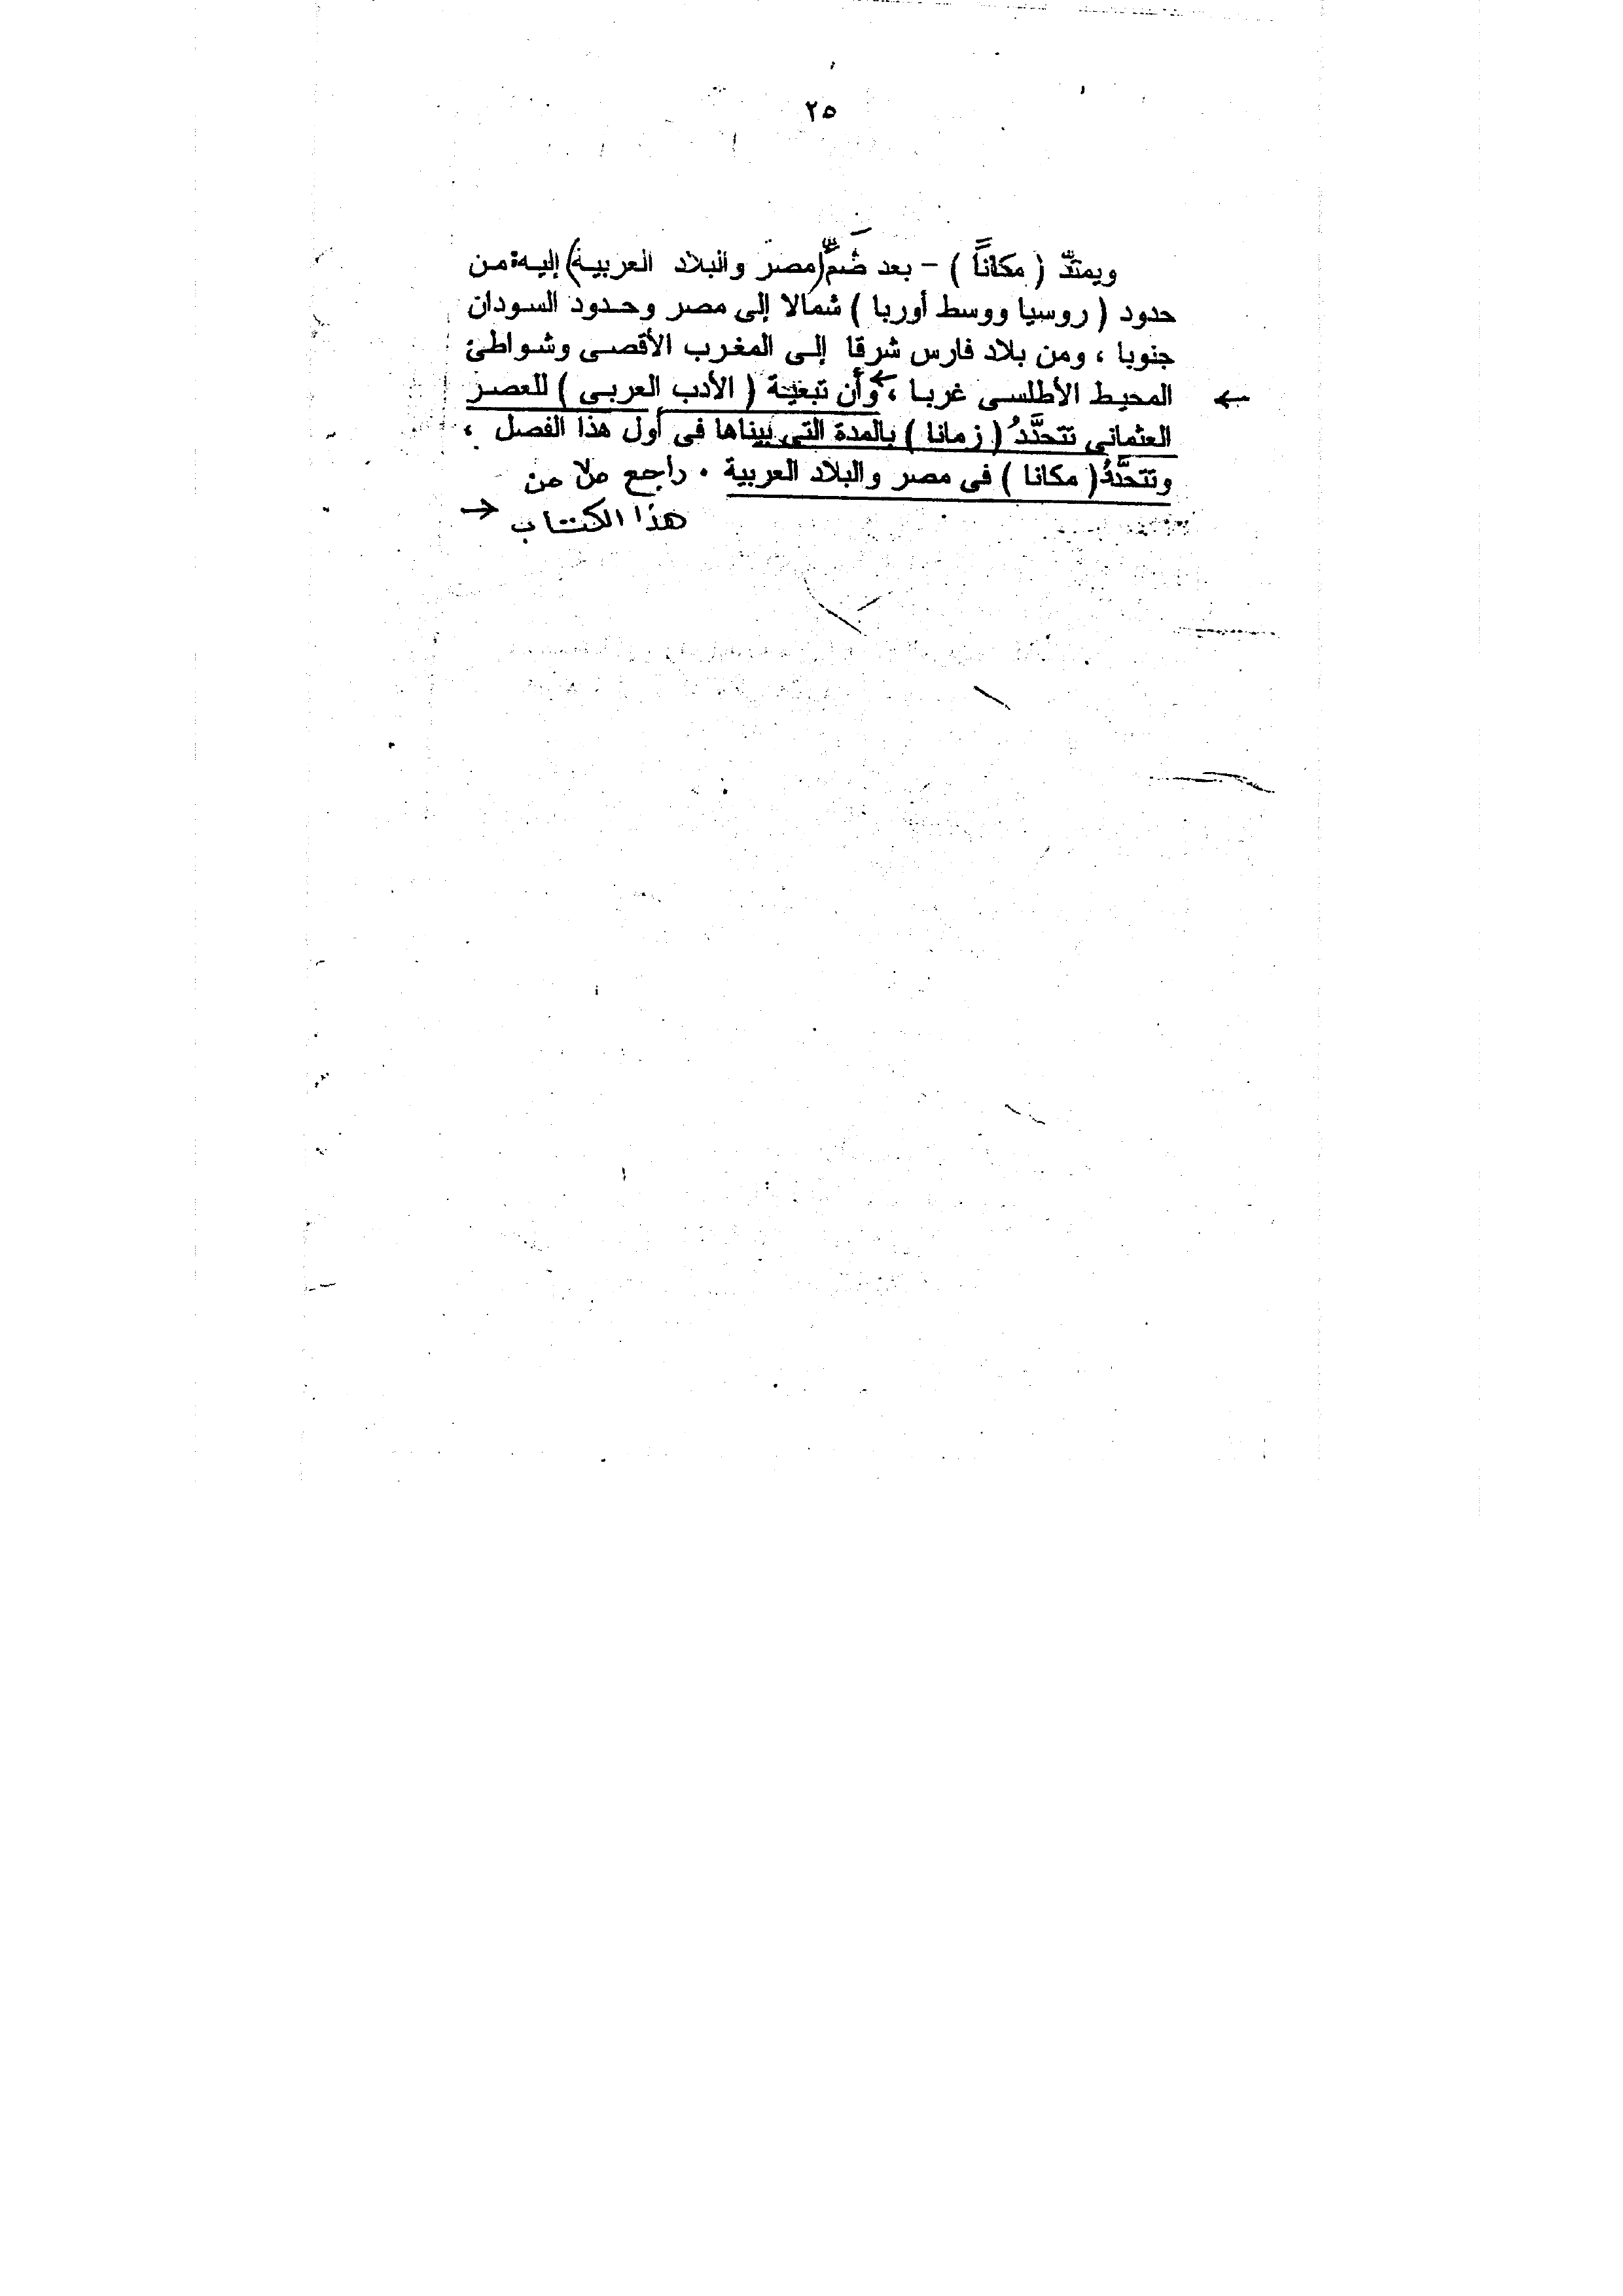 ٢٥
ويمتدّ ( مكاناً ) - بعد ضَمِّ (مصر والبلاد العربية) إليه من
حدود ( روسيا ووسط أوربا ) شمالا إلى مصر وحدود السودان
جنوبا ، ومن بلاد فارس شرقا إلى المغرب الأقصى وشواطئ
المحيط الأطلسى غربا ، وأن تبعية ( الأدب العربى ) للعصر
العثمانى تتحدَّدُ ( زمانا ) بالمدة التى بيناها فى أول هذا الفصل ،
وتتحدَّدُ ( مكانا ) فى مصر والبلاد العربية . راجع من
هذا الكتاب